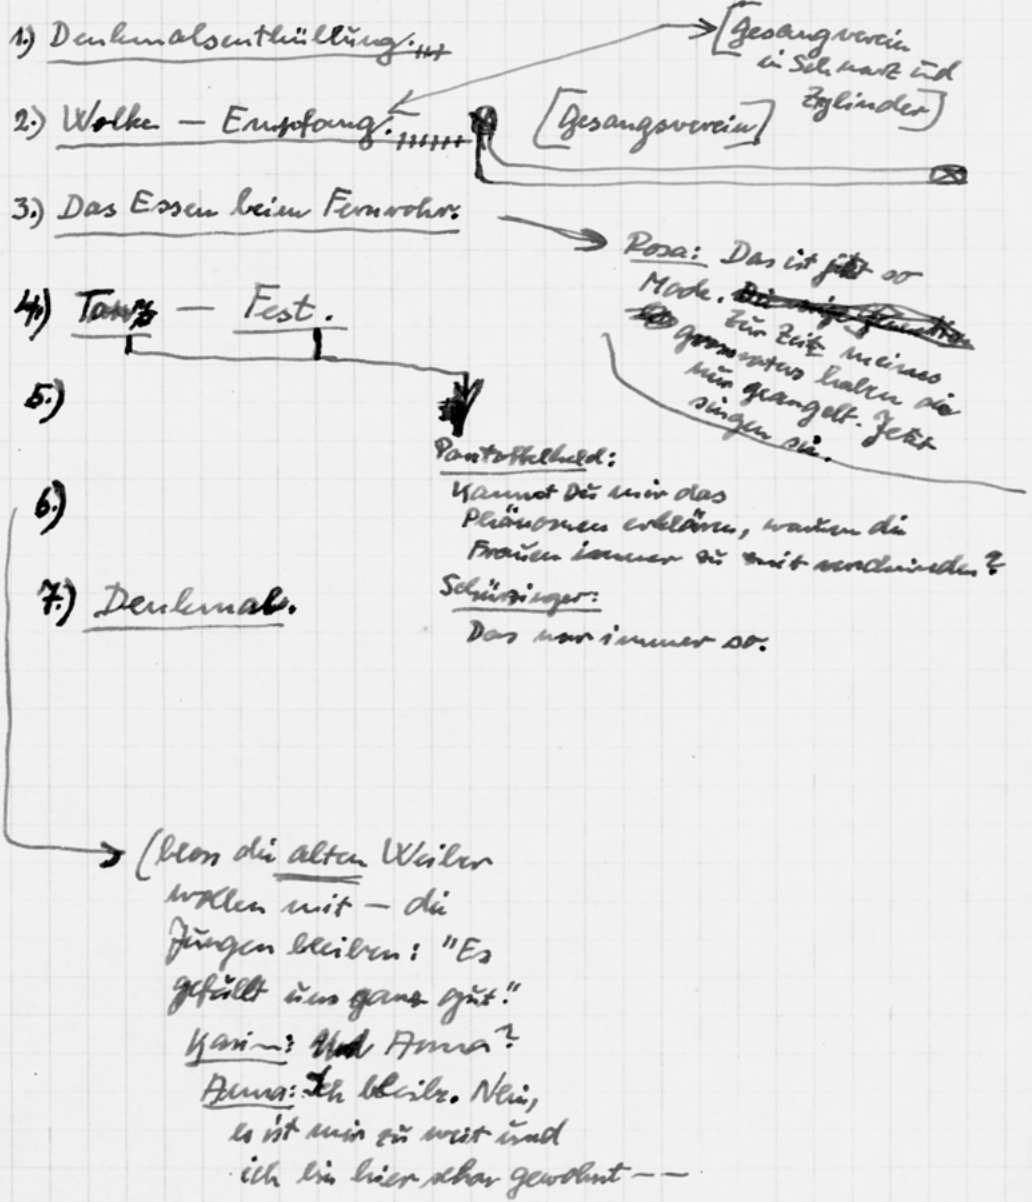 1.) Denkmalsenthüllung.
[Gesangverein
in Schwarz und
Zylinder]
2.) Wolke — Empfang.
[Gesangsverein]
3.) Das Essen beim Fernrohr.
Rosa: Das ist jetzt so
Mode.
Zur Zeit meines
Grossvaters haben sie
nur geangelt. Jetzt
singen sie.
4.) Tanz — Fest.
5.)
Pantoffelheld:
Kannst Du mir das
Phänomen erklären, warum die
Frauen immer zu verschwinden?
6.)
Schürzinger:
Das war immer so.
7.) Denkmal.
(bloss die alten Weiber
wollen mit — die
Jungen bleiben: "Es
gefällt uns ganz gut."
Und Anna?
Anna: Ich bleibe. Nein,
es ist mir zu weit und
ich bin hier schon gewohnt — —